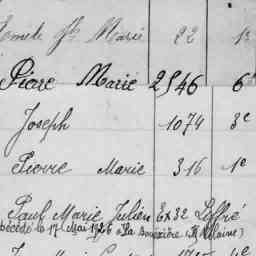 Marie 22 1e
Pierre Marie 2546 6e
Joseph 1074 3e
Pierre Marie 316 1e
Paul Marie Julien Ex32 Liffré
décédé le 17 Mai 1926 à La Bouëxière (Il et Vilaine)